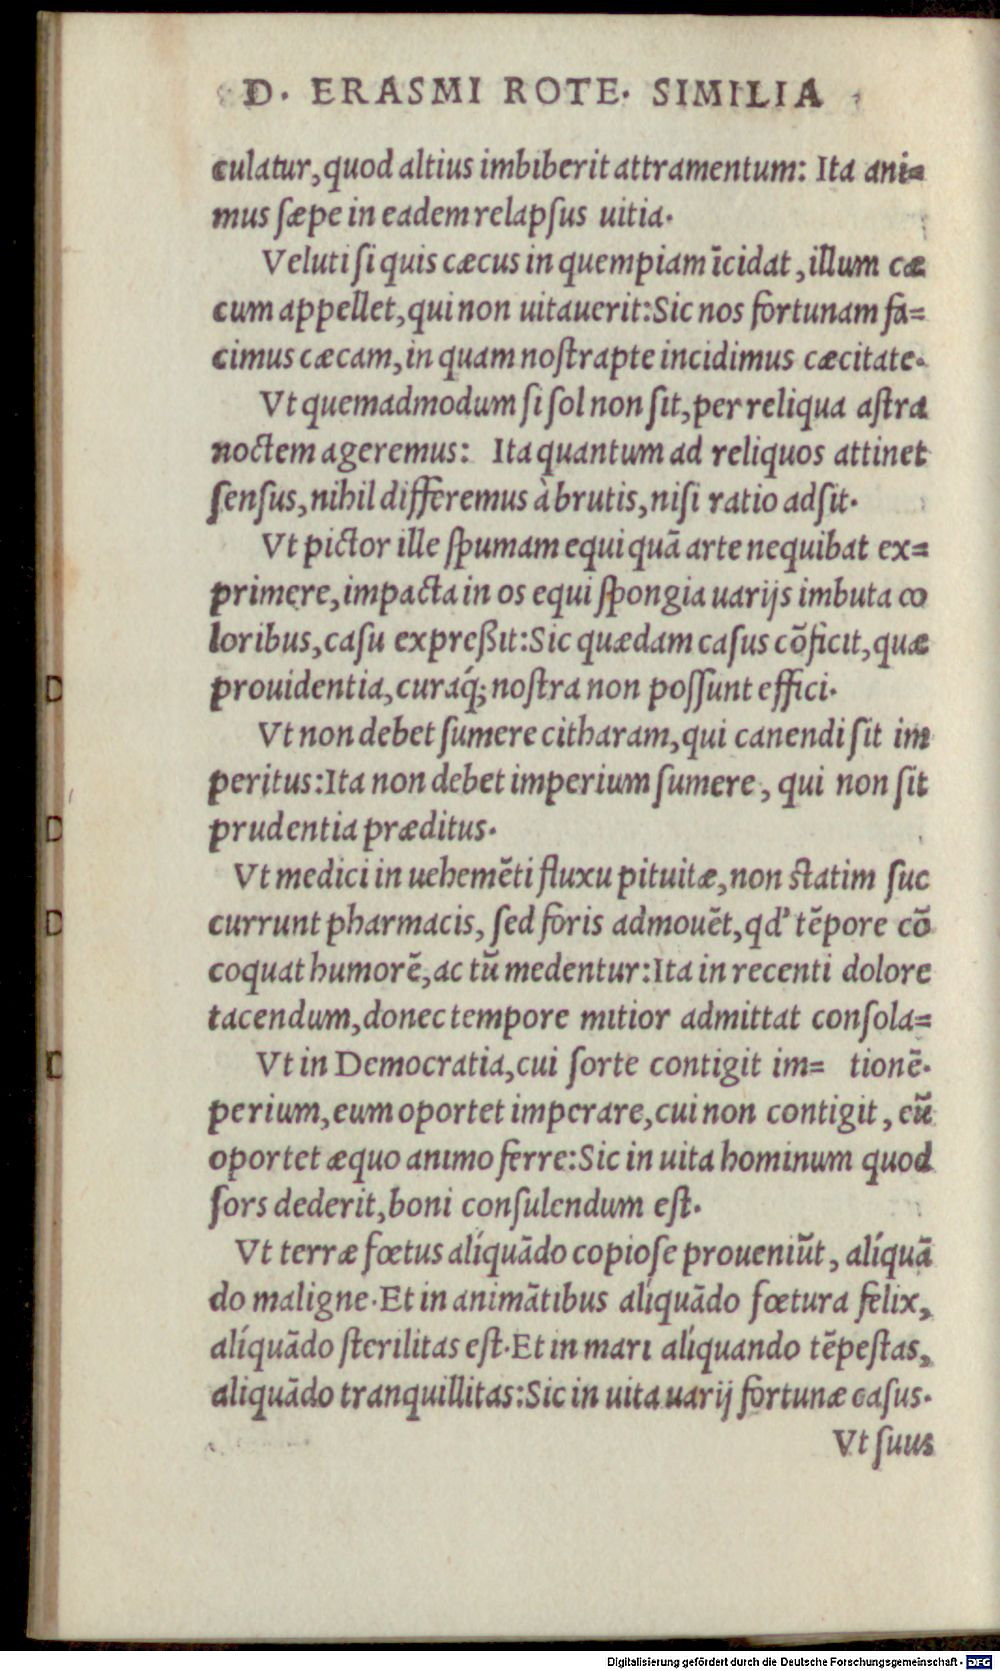 D. ERASMI ROTE. SIMILIA
culatur, quod altius imbiberit attramentum: Ita ani=
mus sæpe in eadem relapsus uitia.
Veluti si quis cæcus in quempiam īcidat, illum cæ
cum appellet, qui non uitauerit: Sic nos fortunam fa=
cimus cæcam, in quam nostrapte incidimus cæcitate.
Vt quemadmodum si sol non sit, per reliqua astra
noctem ageremus: Ita quantum ad reliquos attinet
sensus, nihil differemus à brutis, nisi ratio adsit.
Vt pictor ille spumam equi quā arte nequibat ex=
primere, impacta in os equi spongia uarijs imbuta co
loribus, casu expreßit: Sic quædam casus cōficit, quæ
prouidentia, curaq́; nostra non possunt effici.
Vt non debet sumere citharam, qui canendi sit im
peritus: Ita non debet imperium sumere, qui non sit
prudentia præditus.
Vt medici in uehemēti fluxu pituitæ, non statim suc
currunt pharmacis, sed foris admouēt, qd' tēpore cō
coquat humorē, ac tū medentur: Ita in recenti dolore
tacendum, donec tempore mitior admittat consola=
Vt in Democratia, cui sorte contigit im= tionē.
perium, eum oportet imperare, cui non contigit, eū
oportet æquo animo ferre: Sic in uita hominum quod
sors dederit, boni consulendum est.
Vt terræ fœtus alíquādo copiose proueniūt, alíquā
do maligne. Et in animātibus alíquādo fœtura felix,
alíquādo sterilitas est. Et in mari alíquando tēpestas,
aliquādo tranquillitas: Sic in uita uarij fortunæ casus.
Vt suus
Digitalisierung gefördert durch die Deutsche Forschungsgemeinschaft - DFG